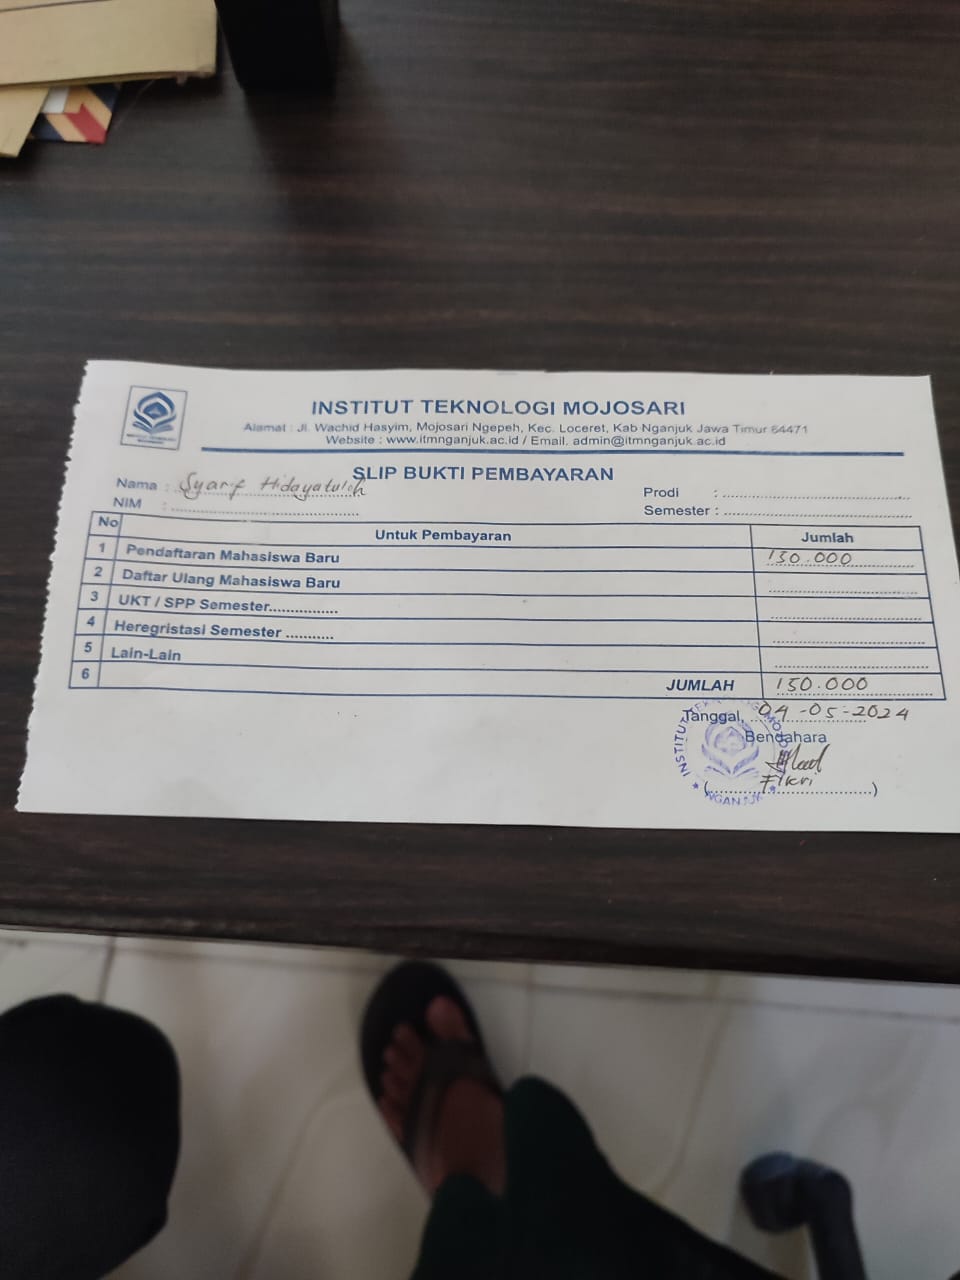 INSTITUT TEKNOLOGI MOJOSARI
Alamat : Jl. Wachid Hasyim, Mojosari Ngepeh, Kec. Loceret, Kab Nganjuk Jawa Timur 64471
Website : www.itmnganjuk.ac.id / Email. admin@itmnganjuk.ac.id
SLIP BUKTI PEMBAYARAN
Nama : Syarif Hidayatuloh
NIM : ........................................
Prodi : ........................................
Semester : ........................................
No Untuk Pembayaran Jumlah
1 Pendaftaran Mahasiswa Baru 150.000
2 Daftar Ulang Mahasiswa Baru
3 UKT / SPP Semester................
4 Heregristasi Semester ...........
5 Lain-Lain
6 JUMLAH 150.000
Tanggal, 04-05-2024
Bendahara
Fikri
(........................................)